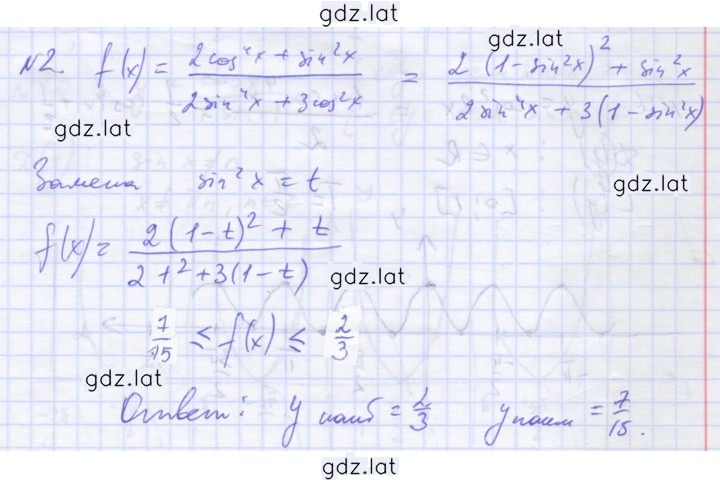 gdz.lat
gdz.lat
№2. f(x) = (2cos⁴x + sin²x)/(2sin⁴x + 3cos²x) = (2(1-sin²x)² + sin²x)/(2sin⁴x + 3(1-sin²x))
gdz.lat
Замена sin²x = t
gdz.lat
f(x) = (2(1-t)² + t)/(2t² + 3(1-t))
gdz.lat
7/15 ≤ f(x) ≤ 2/3
gdz.lat
Ответ: y наиб = 2/3 y наим = 7/15.
gdz.lat